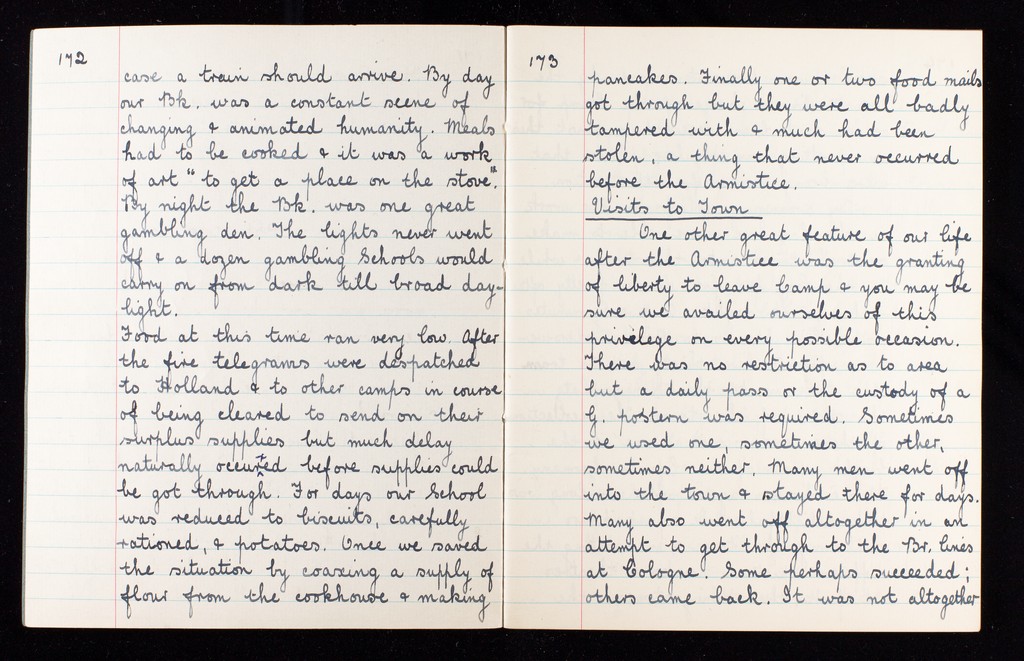 172
case a train should arrive. By day
our Bk. was a constant scene of
changing & animated humanity. Meals
had to be cooked & it was a work
of art "to get a place on the stove".
By night the Bk. was one great
gambling den. The lights never went
off & a dozen gambling Schools would
carry on from dark till broad day-
light.
Food at this time ran very low. After
the fire telegrams were despatched
to Holland & to other camps in course
of being cleared to send on their
surplus supplies but much delay
naturally occurred before supplies could
be got through. For days our School
was reduced to biscuits, carefully
rationed, & potatoes. Once we saved
the situation by coaxing a supply of
flour from the cookhouse & making
173
pancakes. Finally one or two food mails
got through but they were all badly
tampered with & much had been
stolen, a thing that never occurred
before the Armistice.
Visits to Town
One other great feature of our life
after the Armistice was the granting
of liberty to leave Camp & you may be
sure we availed ourselves of this
privelege on every possible occasion.
There was no restriction as to area
but a daily pass or the custody of a
G. postern was required. Sometimes
we used one, sometimes the other,
sometimes neither. Many men went off
into the town & stayed there for days.
Many also went off altogether in an
attempt to get through to the Br. lines
at Cologne. Some perhaps succeeded;
others came back. It was not altogether